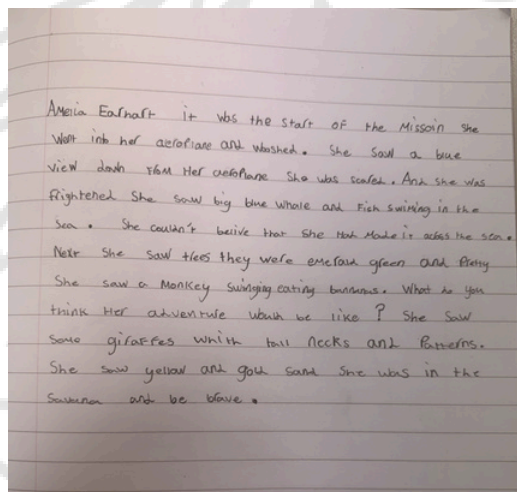 Ameila Earhart it was the start of the Missoin she
went into her aeroplane and wooshed. She saw a blue
view down from Her aeroplane She was scared. And she was
frightened She saw big blue whale and Fish swiming in the
Sea. She couldn't belive that She Had Made it across the sea.
Next She saw trees they were emerald green and Pretty
She saw a Monkey swinging eating bananas. What do you
think Her adventure would be like? She Saw
some giraffes whith tall necks and Patterns.
She saw yellow and gold sand She was in the
Savanna and be brave.